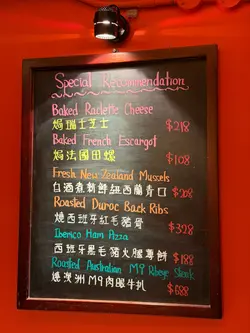 Special Recommendation
Baked Raclette Cheese
焗瑞士芝士 $218
Baked French Escargot
焗法國田螺 $108
Fresh New Zealand Mussels
白酒煮新鮮紐西蘭青口 $208
Roasted Duroc Back Ribs
燒西班牙紅毛豬骨 $328
Iberico Ham Pizza
西班牙黑毛豬火腿薄餅 $188
Roasted Australian M9 Ribeye Steak
燒澳洲M9肉眼牛扒 $688